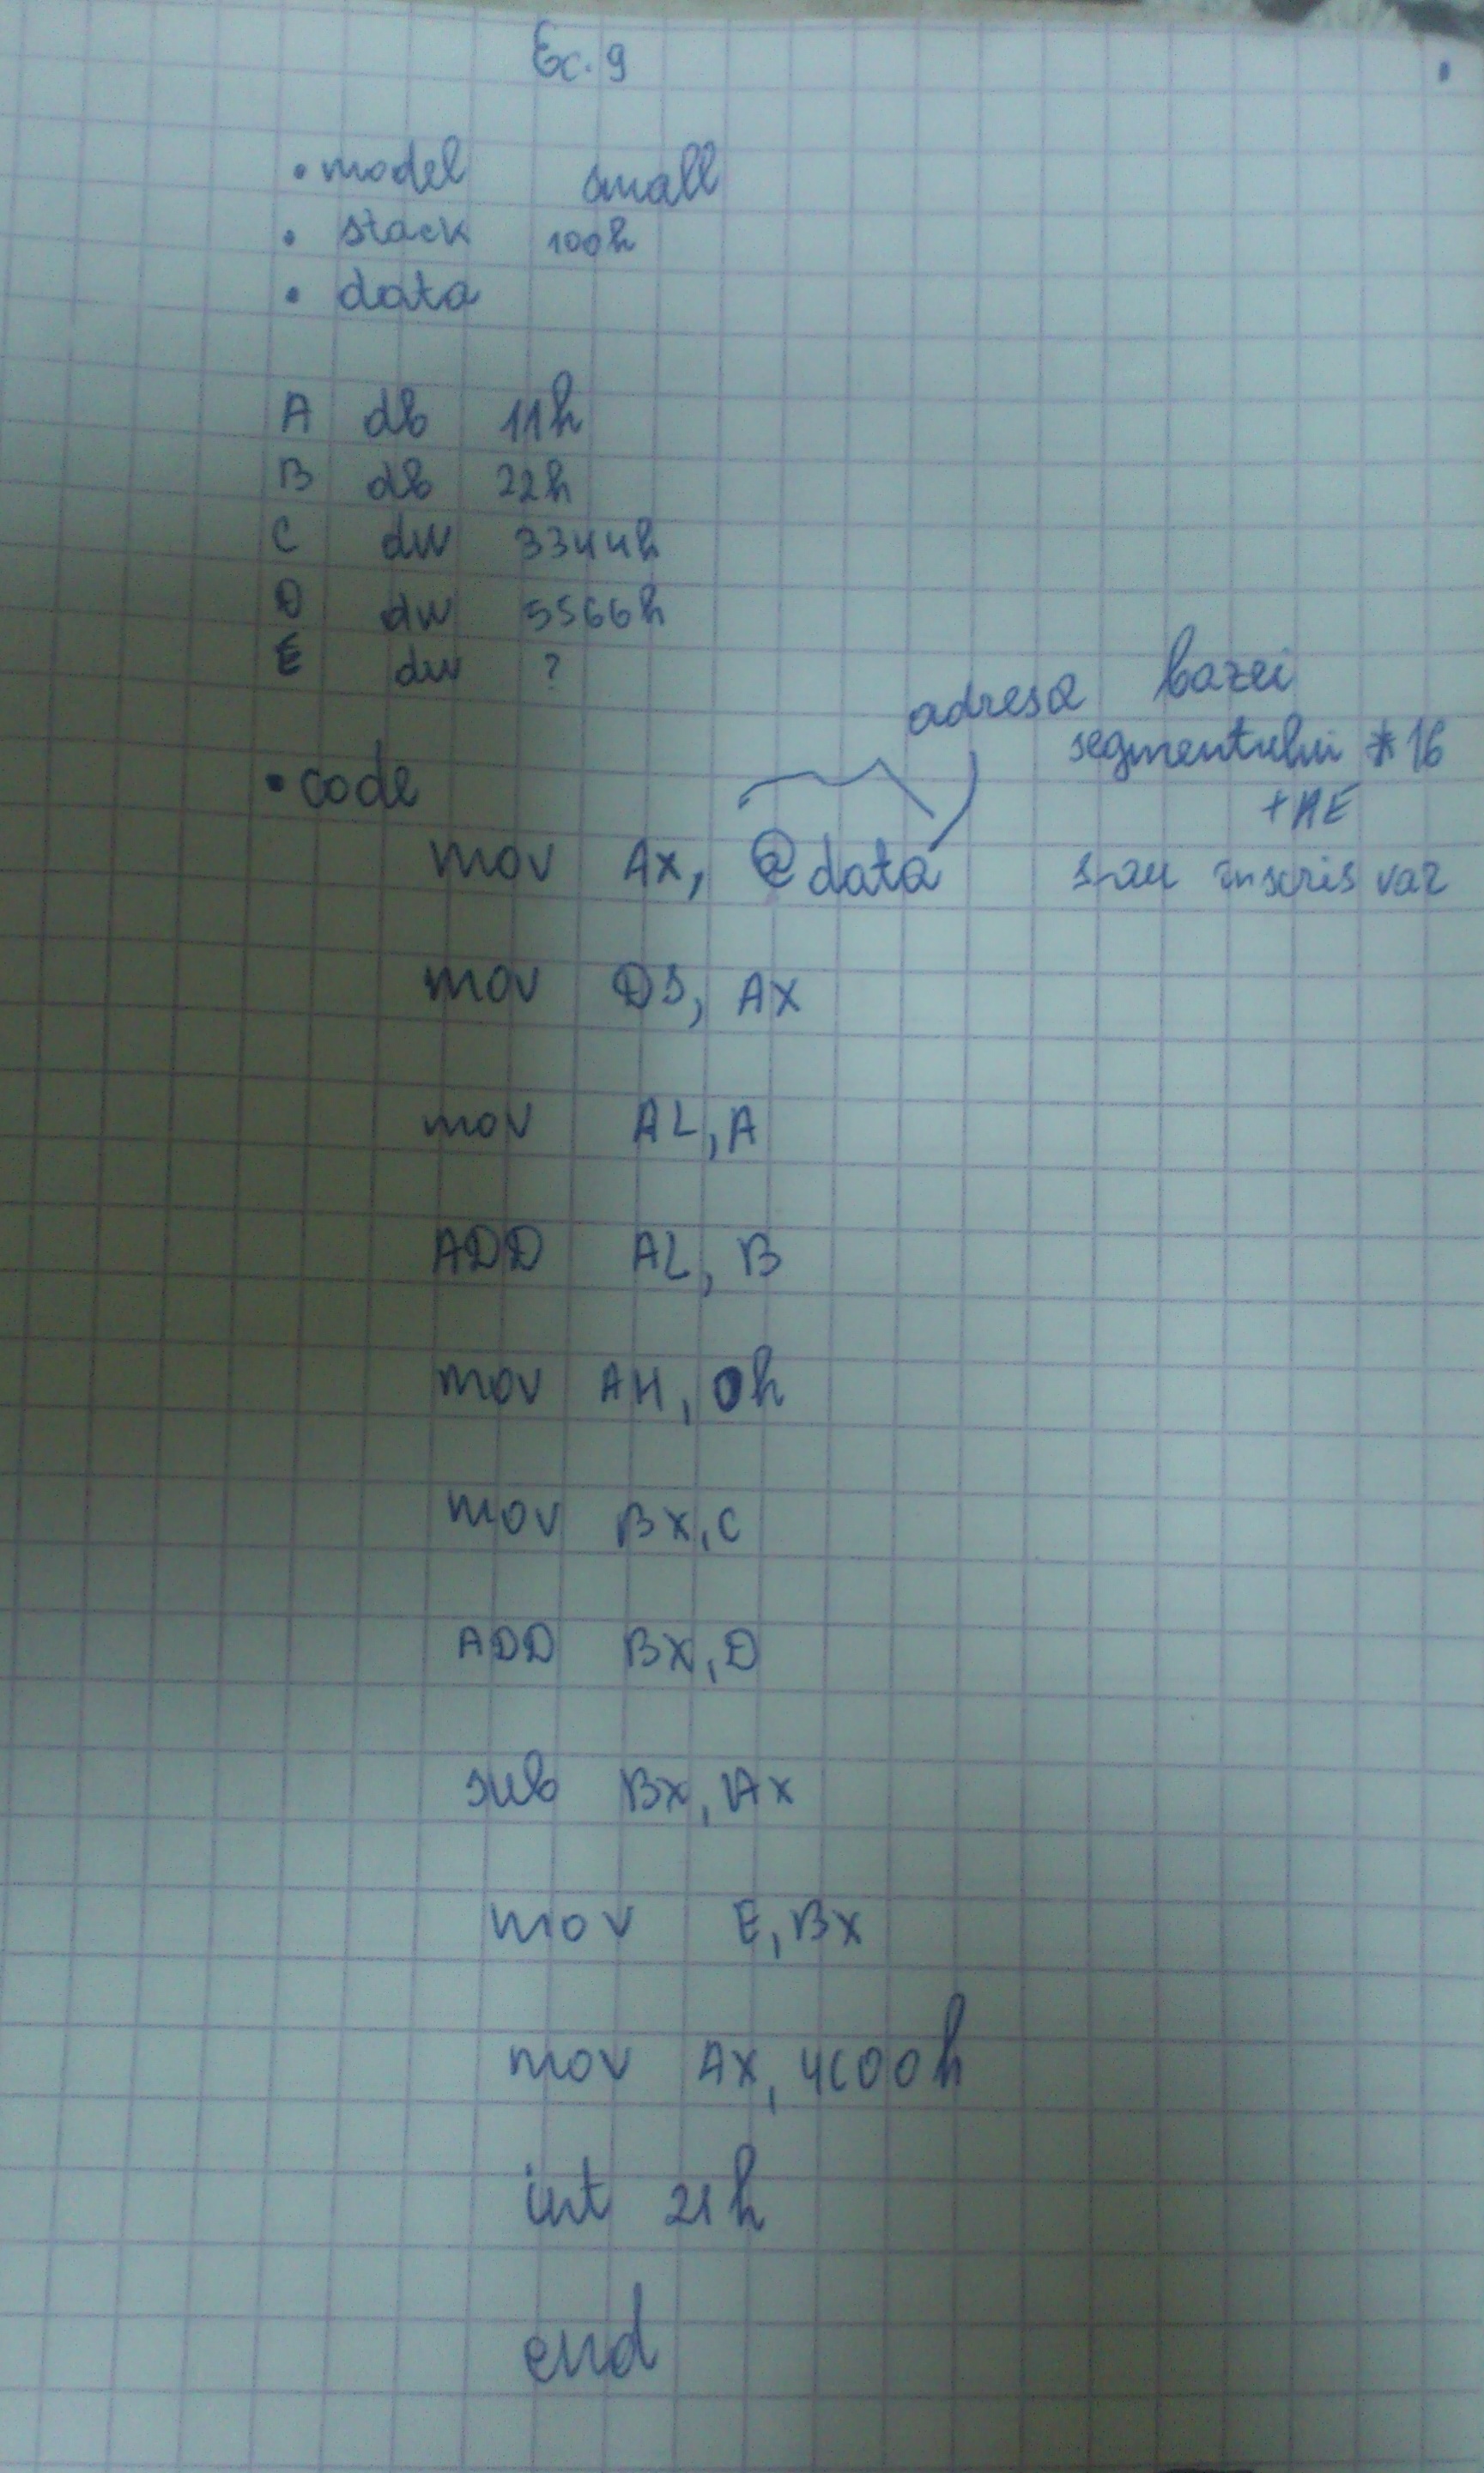 Ex. 9
.model small
. stack 100h
. data
A db 11h
B db 22h
C dw 3344h
D dw 5566h
E dw ?
adresa bazei
segmentului *16
+AE
.code
mov AX, @data s-au inscris var
mov DS, AX
mov AL, A
ADD AL, B
mov AH, 0h
mov BX, C
ADD BX, D
sub BX, AX
mov E, BX
mov AX, 4C00h
int 21h
end